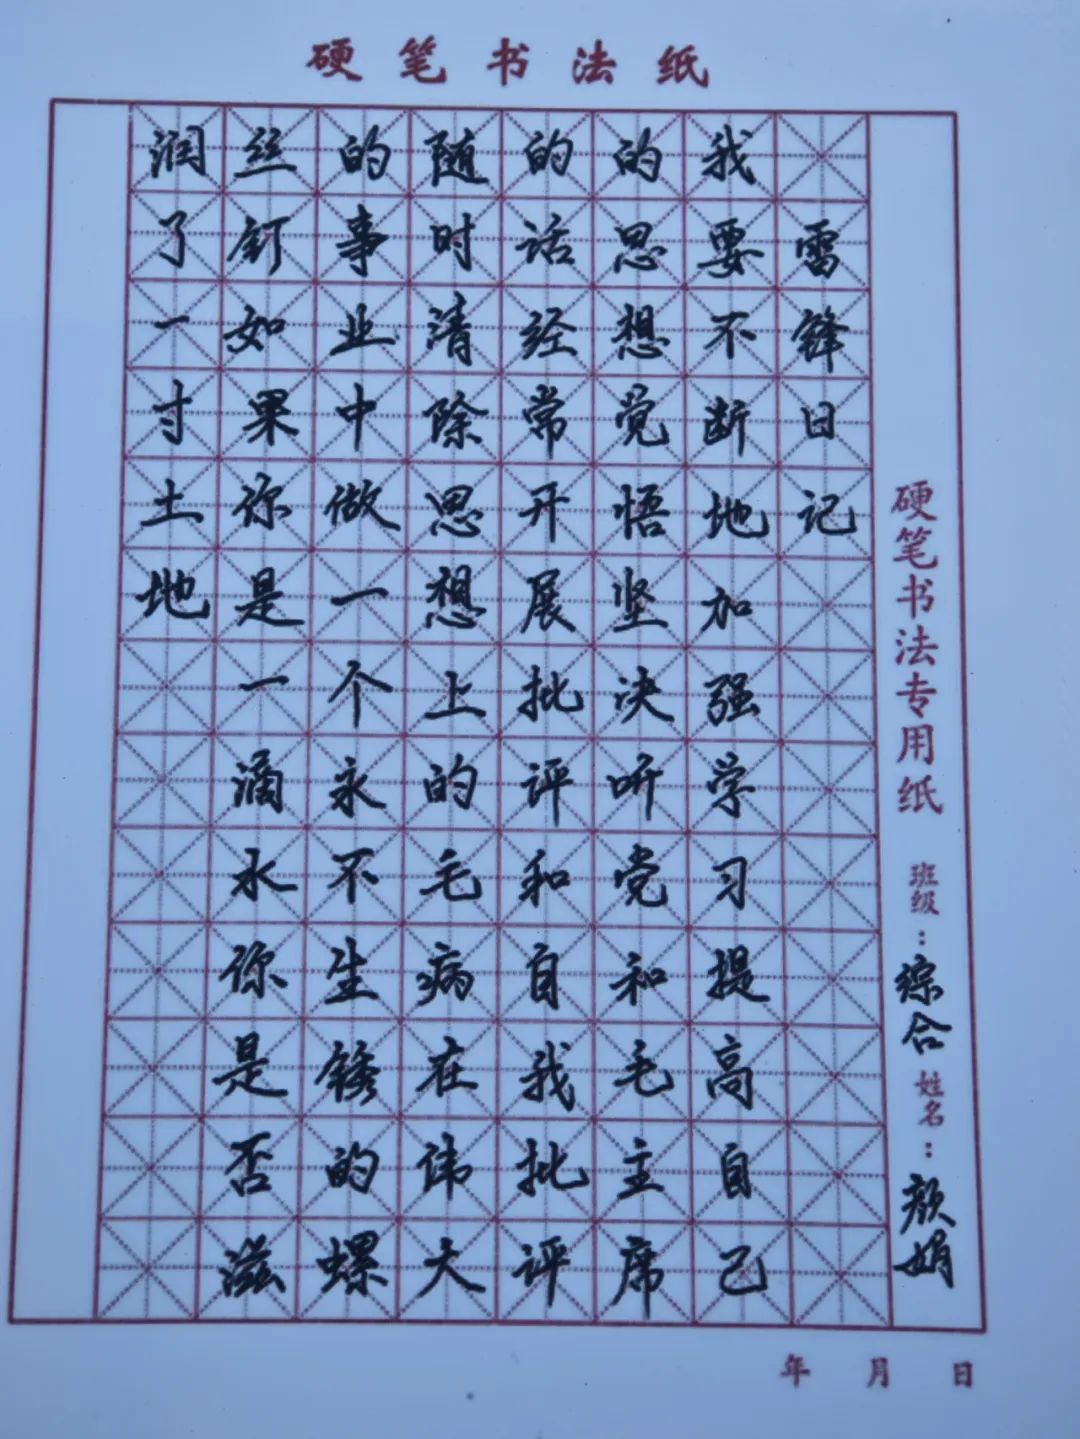 硬笔书法纸
雷锋日记
我要不断地加强学习提高自己
的思想觉悟坚决听党和毛主席
的话经常开展批评和自我批评
随时清除思想上的毛病在伟大
的事业中做一个永不生锈的螺
丝钉如果你是一滴水你是否滋
润了一寸土地
硬笔书法专用纸 班级：综合 姓名：颜娟
年 月 日